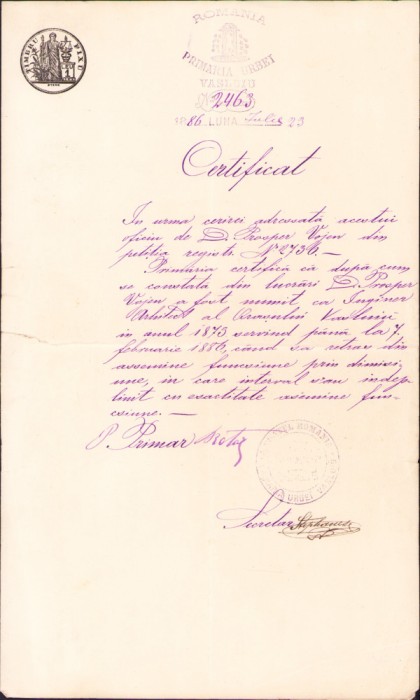 TIMBRU FIX
ROMANIA
PRIMARIA URBEI
VASLUIU
No 2463
1886 LUNA Iulie 23
Certificat
In urma cerirei adressată acestui
oficiu de D. Prosper Vojen din
petitia registr. No 2736.—
Primăria certifică că după cum
se constata din lucrări D. Prosper
Vojen a fost numit ca Inginer
Arhitect al Orasului Vasluiŭ
in anul 1873 servind până la 7
februarie 1886, când sa retras din
assemine funcsiune prin dimisi-
une, in care interval s'au indep-
linit cu exactitate asemine func-
csiune.—
P. Primar
Secretar